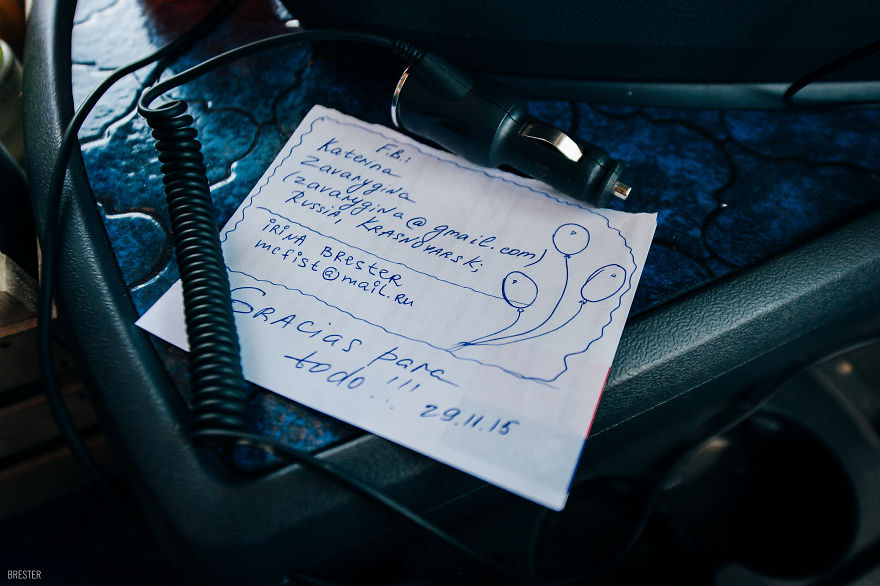 F.B.:
Katerina
Zavarygina
(zavarygina@gmail.com)
Russia, Krasnoyarsk;
iRiNA BRESTER
mcfist@mail.ru
GRACias para
todo!!!
29.11.15
BRESTER